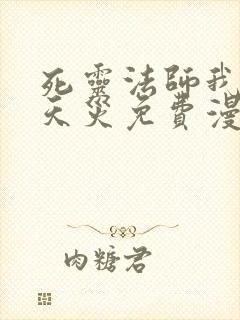 死靈法師我
天災免費漫
肉糖君